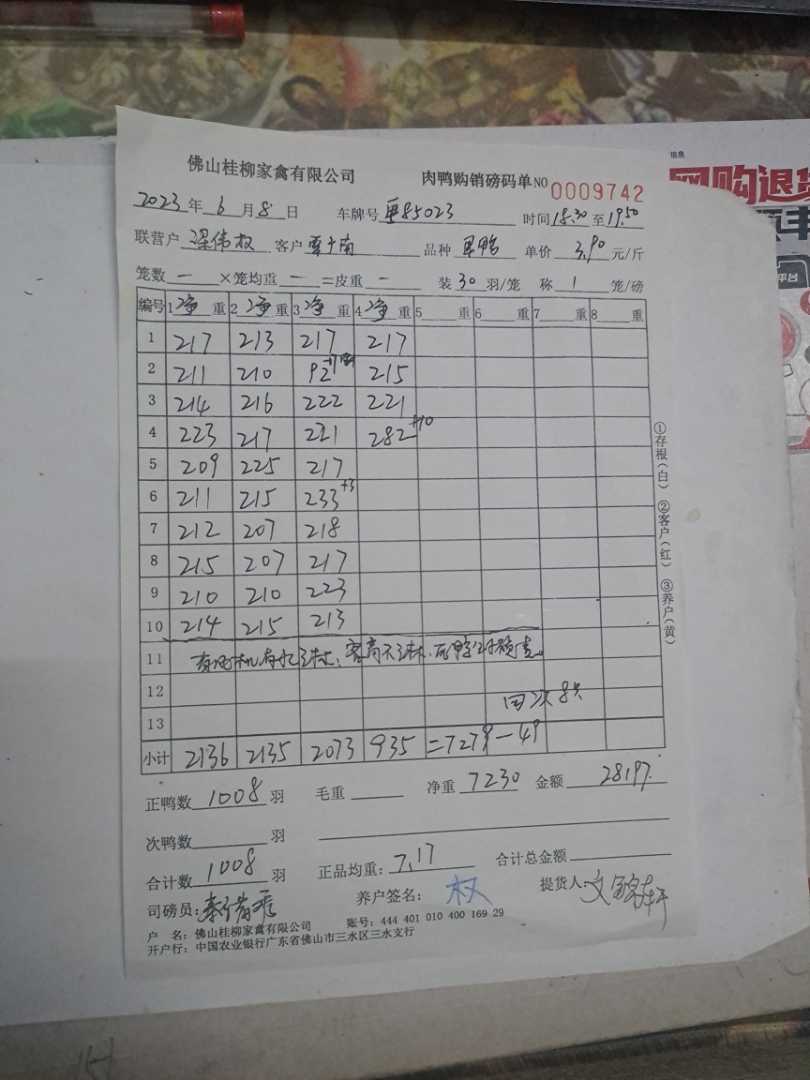 佛山桂柳家禽有限公司 肉鸭购销磅码单 NO 0009742
2023年6月8日 车牌号 85023 时间18:30至19:50
联营户 梁伟权 客户 品种 单价 3.90 元/斤
笼数 一 ×笼均重 一 =皮重 一 装30羽/笼 称 1 笼/磅
编号 1净重 2净重 3净重 4净重 5 重 6 重 7 重 8 重
1 217 213 217 217
2 211 210 92 215
3 214 216 222 221
4 223 217 221 282+10
5 209 225 217
6 211 215 233+3
7 212 207 218
8 215 207 217
9 210 210 223
10 214 215 213
11
12 回次8只
13
小计 2136 2135 2073 935 =7279-49
正鸭数 1008 羽 毛重 净重 7230 金额 28197.
次鸭数 羽
合计数 1008 羽 正品均重: 7.17 合计总金额
司磅员: 养户签名: 权 提货人:
户 名: 佛山桂柳家禽有限公司 账号: 444 401 010 400 169 29
开户行: 中国农业银行广东省佛山市三水区三水支行
①存根(白) ②客户(红) ③养户(黄)
信息
网购退货
平台